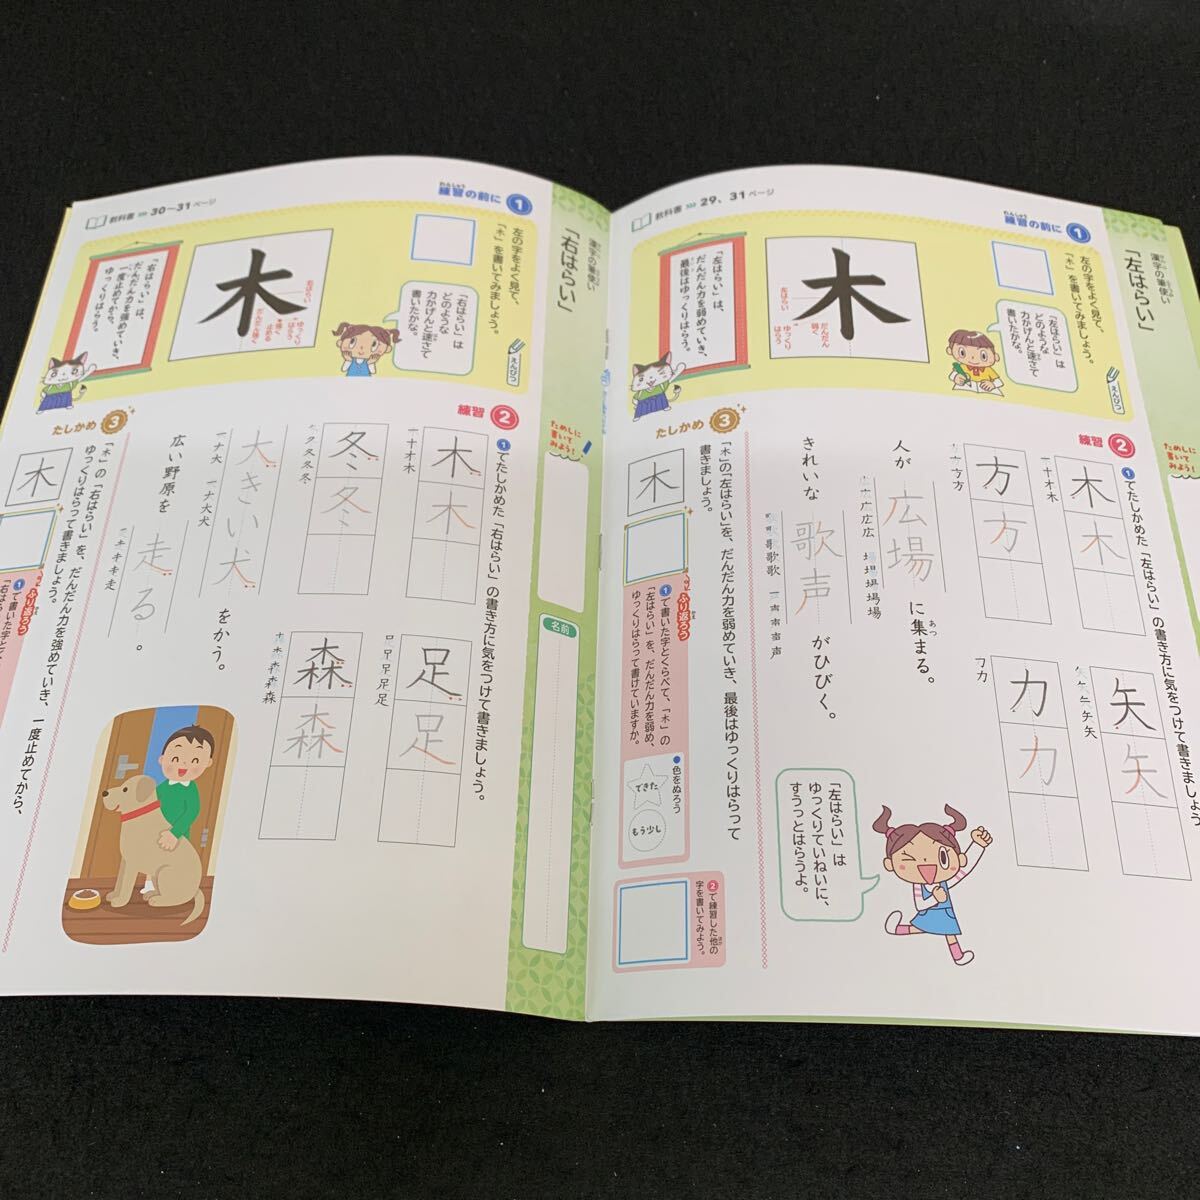 漢字の筆使い
「左はらい」
ためしに
書いて
みよう！
教科書 >>> 29、31ページ
れんしゅう
練習の前に 1
左の字をよく見て、
「木」を書いてみましょう。
えんぴつ
「左はらい」は
どのような
力かげんと速さで
書いたかな。
木
左はらい
だんだん
弱く
ゆっくり
はらう
「左はらい」は、
だんだん力を弱めていき、
最後はゆっくりはらう。
練習 2
1でたしかめた「左はらい」の書き方に気をつけて書きましょう
木 木
一十オ木
矢 矢
矢
方 方
方方
力 力
フカ
人が広場に集まる。
あつ
広広
場場場
きれいな歌声がひびく。
歌歌
声声
「左はらい」は
ゆっくりていねいに、
すうっとはらうよ。
たしかめ 3
「木」の「左はらい」を、だんだん力を弱めていき、最後はゆっくりはらって
書きましょう。
木
ふり返ろう
1で書いた字とくらべて、「木」の
「左はらい」を、だんだん力を弱め、
ゆっくりはらって書けていますか。
●色をぬろう
できた
もう少し
2で練習した他の
字を書いてみよう。
漢字の筆使い
「右はらい」
ためしに
書いて
みよう！
名前
教科書 >>> 30〜31ページ
れんしゅう
練習の前に 1
左の字をよく見て、
「木」を書いてみましょう。
えんぴつ
「右はらい」は
どのような
力かげんと速さで
書いたかな。
木
右はらい
だんだん強く
強く
止める
ゆっくり
はらう
「右はらい」は、
だんだん力を強めていき、
一度止めてから、
ゆっくりはらう。
練習 2
1でたしかめた「右はらい」の書き方に気をつけて書きましょう。
木 木
一十オ木
足 足
足足
冬 冬
ノク冬冬
森 森
森森
大きい犬をかう。
一ナ大
一ナ大犬
広い野原を走る。
走
たしかめ 3
「木」の「右はらい」を、だんだん力を強めていき、一度止めてから、
ゆっくりはらって書きましょう。
木
ふり返ろう
1で書いた字と
「右は